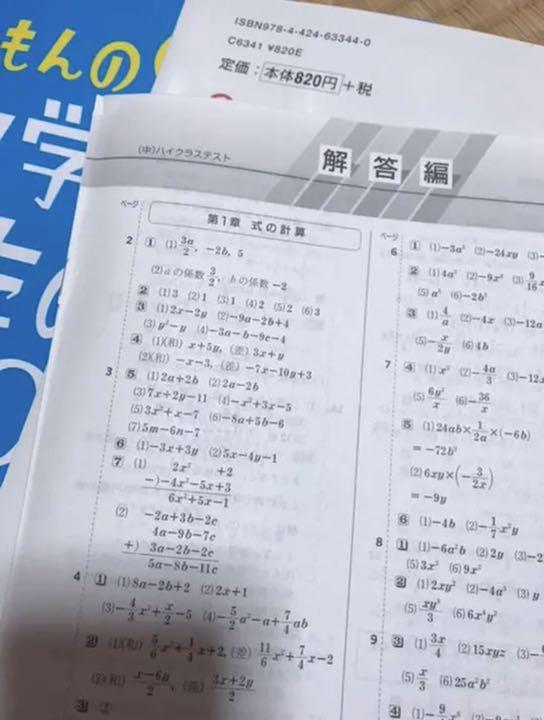 もんの
ISBN978-4-424-63344-0
C6341 ¥820E
定価:本体820円+税
学
(中)ハイクラステスト
解答編
ページ
第1章 式の計算
2 1 (1) 3a/2, -2b, 5
(2) aの係数 3/2, bの係数 -2
2 (1)3 (2)1 (3)1 (4)2 (5)2 (6)3
3 (1)2x-2y (2)-9a-2b+4
(3)y²-y (4)-3a-b-9c-4
4 (1)(和) x+5y, (差) 3x+y
(2)(和) -x-3, (差) -7x-10y+3
3 5 (1)2a+2b (2)2a-2b
(3)7x+2y-11 (4)-x²+3x-5
(5)3x²+x-7 (6)-8a+5b-6
(7)5m-6n-7
6 (1)-3x+3y (2)5x-4y-1
7 (1) 2x² +2
-)-4x²-5x+3
6x²+5x-1
(2) -2a+3b-2c
4a-9b-7c
+) 3a-2b-2c
5a-8b-11c
4 1 (1)8a-2b+2 (2)2x+1
(3)-4/3x²+x/2-5 (4)-5/2a²-a+7/4ab
2 (1)(和) 5/6x²+1/4x+2, (差) 11/6x²+7/4x-2
(2)(和) x-6y/2, (差) 3x+2y/2
3 ②
ページ
6 1 (1)-3a³ (2)-24xy (3)
2 (1)4a² (2)-9x² (3) 9/16
(5)a⁵ (6)-2b³
3 (1) 4/a (2)-4x (3)-12a
(5)-x/2y (6)4b
7 4 (1)x² (2)-4a/3 (3)-12x
(5) 6y²/x (6)-36/x
5 (1)24ab×1/2a×(-6b)
=-72b²
(2)6xy×(-3/2x)
=-9y
6 (1)-4b (2)-1/7x²y
8 1 (1)-6a²b (2)2y (3)-2
(5)3x³ (6)9x²
2 (1)2xy² (2)-4a³ (3)y
(5) xy³/3 (6)6x⁴y²
9 3 (1) 3x/4 (2)15xyz (3)-
(5) x/3 (6)25a²b²
4 (1)-9